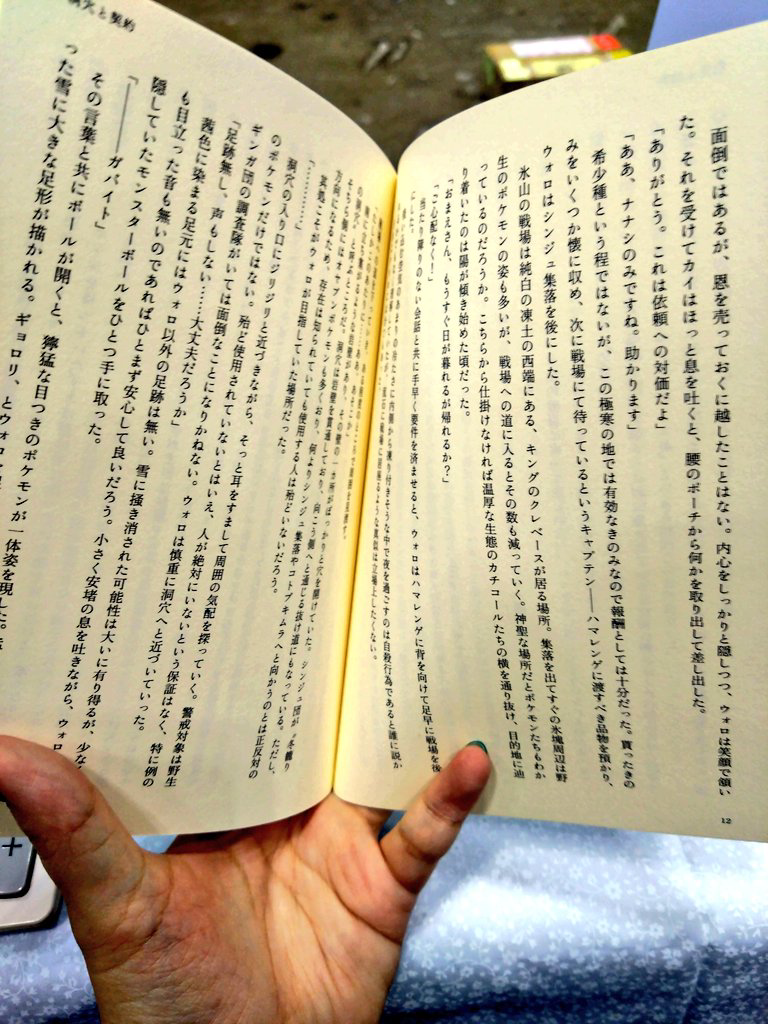 面倒ではあるが、恩を売っておくに越したことはない。内心をしっかりと隠しつつ、ウォロは笑顔で頷い
た。それを受けてカイはほっと息を吐くと、腰のポーチから何かを取り出して差し出した。
「ありがとう。これは依頼への対価だよ」
「ああ、ナナシのみですね。助かります」
希少種という程ではないが、この極寒の地では有効なきのみなので報酬としては十分だった。買ったきの
みをいくつか懐に収め、次に戦場にて待っているというキャプテン――ハマレンゲに渡すべき品物を預かり、
ウォロはシンジュ集落を後にした。
氷山の戦場は純白の凍土の西端にある、キングのクレベースが居る場所。集落を出てすぐの氷塊周辺は野
生のポケモンの姿も多いが、戦場への道に入るとその数も減っていく。神聖な場所だとポケモンたちもわか
っているのだろうか。こちらから仕掛けなければ温厚な生態のカチコールたちの横を通り抜け、目的地に辿
り着いたのは陽が傾き始めた頃だった。
「おまえさん、もうすぐ日が暮れるが帰れるか?」
「ご心配なく!」
当たり障りのない会話と共に手早く要件を済ませると、ウォロはハマレンゲに背を向けて足早に戦場を後
にした。
12
洞穴と契約
の洞穴』と呼ぶところだ。
そちら側にはオヤブンポケモンも多くおり、何よりシンジュ集落やコトブキムラへと向かうのとは正反対の
方向になるため、存在は知られていても使用する人は殆どいないだろう。
其処こそがウォロが目指していた場所だった。
「…………」
洞穴の入り口にジリジリと近づきながら、そっと耳をすまして周囲の気配を探っていく。警戒対象は野生
のポケモンだけではない。殆ど使用されていないとはいえ、人が絶対にいないという保証はなく、特に例の
ギンガ団の調査隊がいては面倒なことになりかねない。ウォロは慎重に洞穴へと近づいていった。
「足跡無し、声もしない……大丈夫だろうか」
茜色に染まる足元にはウォロ以外の足跡は無い。雪に掻き消された可能性は大いに有り得るが、少なく
も目立った音も無いのであればひとまず安心して良いだろう。小さく安堵の息を吐きながら、ウォロ
隠していたモンスターボールをひとつ手に取った。
「――ガバイト」
その言葉と共にボールが開くと、獰猛な目つきのポケモンが一体姿を現した。
った雪に大きな足形が描かれる。ギョロリ、とウォロ